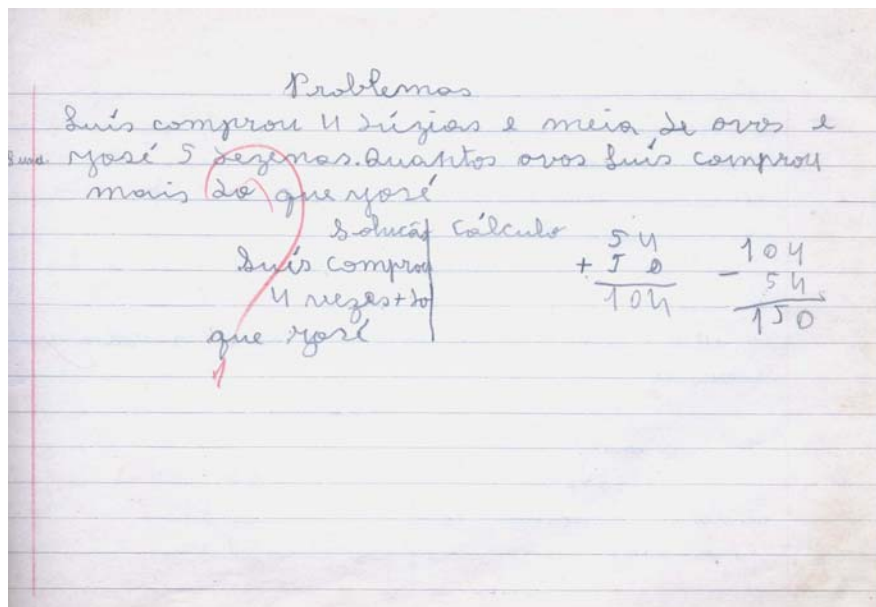 Problemas
Luís comprou 4 dúzias e meia de ovos e
José 5 dezenas. Quantos ovos Luís comprou
mais do que José
Solução Cálculo
Luís comprou
4 vezes + do
que José
54
+ 50
104
104
- 54
150